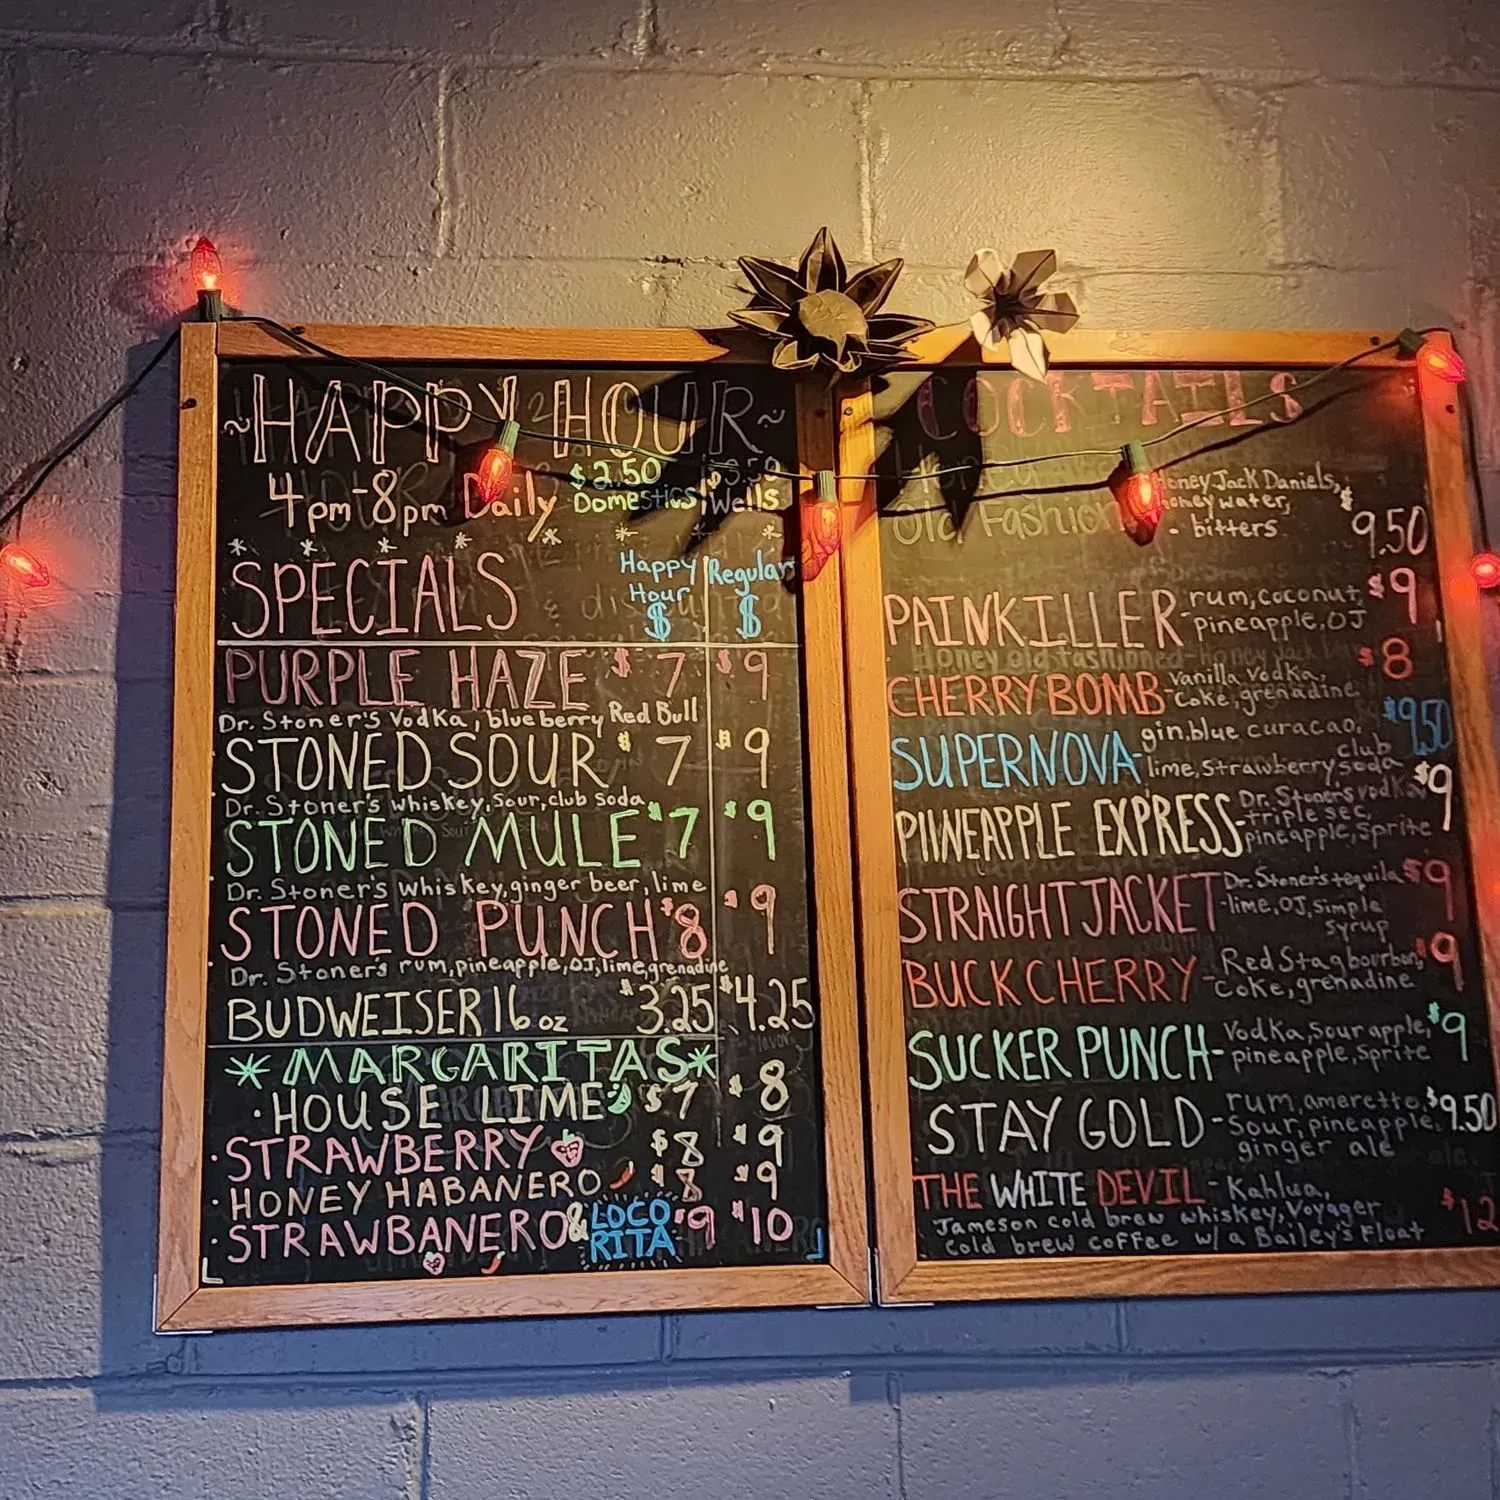 ~HAPPY HOUR~
4pm-8pm Daily
$2.50 Domestics,
Wells
SPECIALS
Happy Hour $
Regular $
PURPLE HAZE $7 $9
Dr. Stoner's Vodka, blueberry Red Bull
STONED SOUR $7 $9
Dr. Stoner's whiskey, sour, club soda
STONED MULE $7 $9
Dr. Stoner's whiskey, ginger beer, lime
STONED PUNCH $8 $9
Dr. Stoner's rum, pineapple, OJ, lime, grenadine
BUDWEISER 16 oz $3.25 $4.25
*MARGARITAS*
·HOUSE LIME $7 $8
·STRAWBERRY $8 $9
·HONEY HABANERO $8 $9
·STRAWBANERO & LOCO RITA $9 $10
COCKTAILS
Old Fashion
Honey Jack Daniels,
honey water,
- bitters
$9.50
PAINKILLER- rum, coconut, $9
pineapple, OJ
CHERRY BOMB- vanilla vodka, $8
Coke, grenadine
SUPERNOVA- gin, blue curacao, $9.50
lime, strawberry, club soda
PIINEAPPLE EXPRESS- Dr. Stoner's vodka, $9
triple sec,
pineapple, Sprite
STRAIGHT JACKET- Dr. Stoner's tequila $9
lime, OJ, simple
syrup
BUCK CHERRY- Red Stag bourbon, $9
Coke, grenadine
SUCKER PUNCH- Vodka, sour apple, $9
pineapple, Sprite
STAY GOLD- rum, ameretto, $9.50
sour, pineapple,
ginger ale
THE WHITE DEVIL- Kahlua, $12
Jameson cold brew whiskey, Voyager
cold brew coffee w/a Bailey's Float